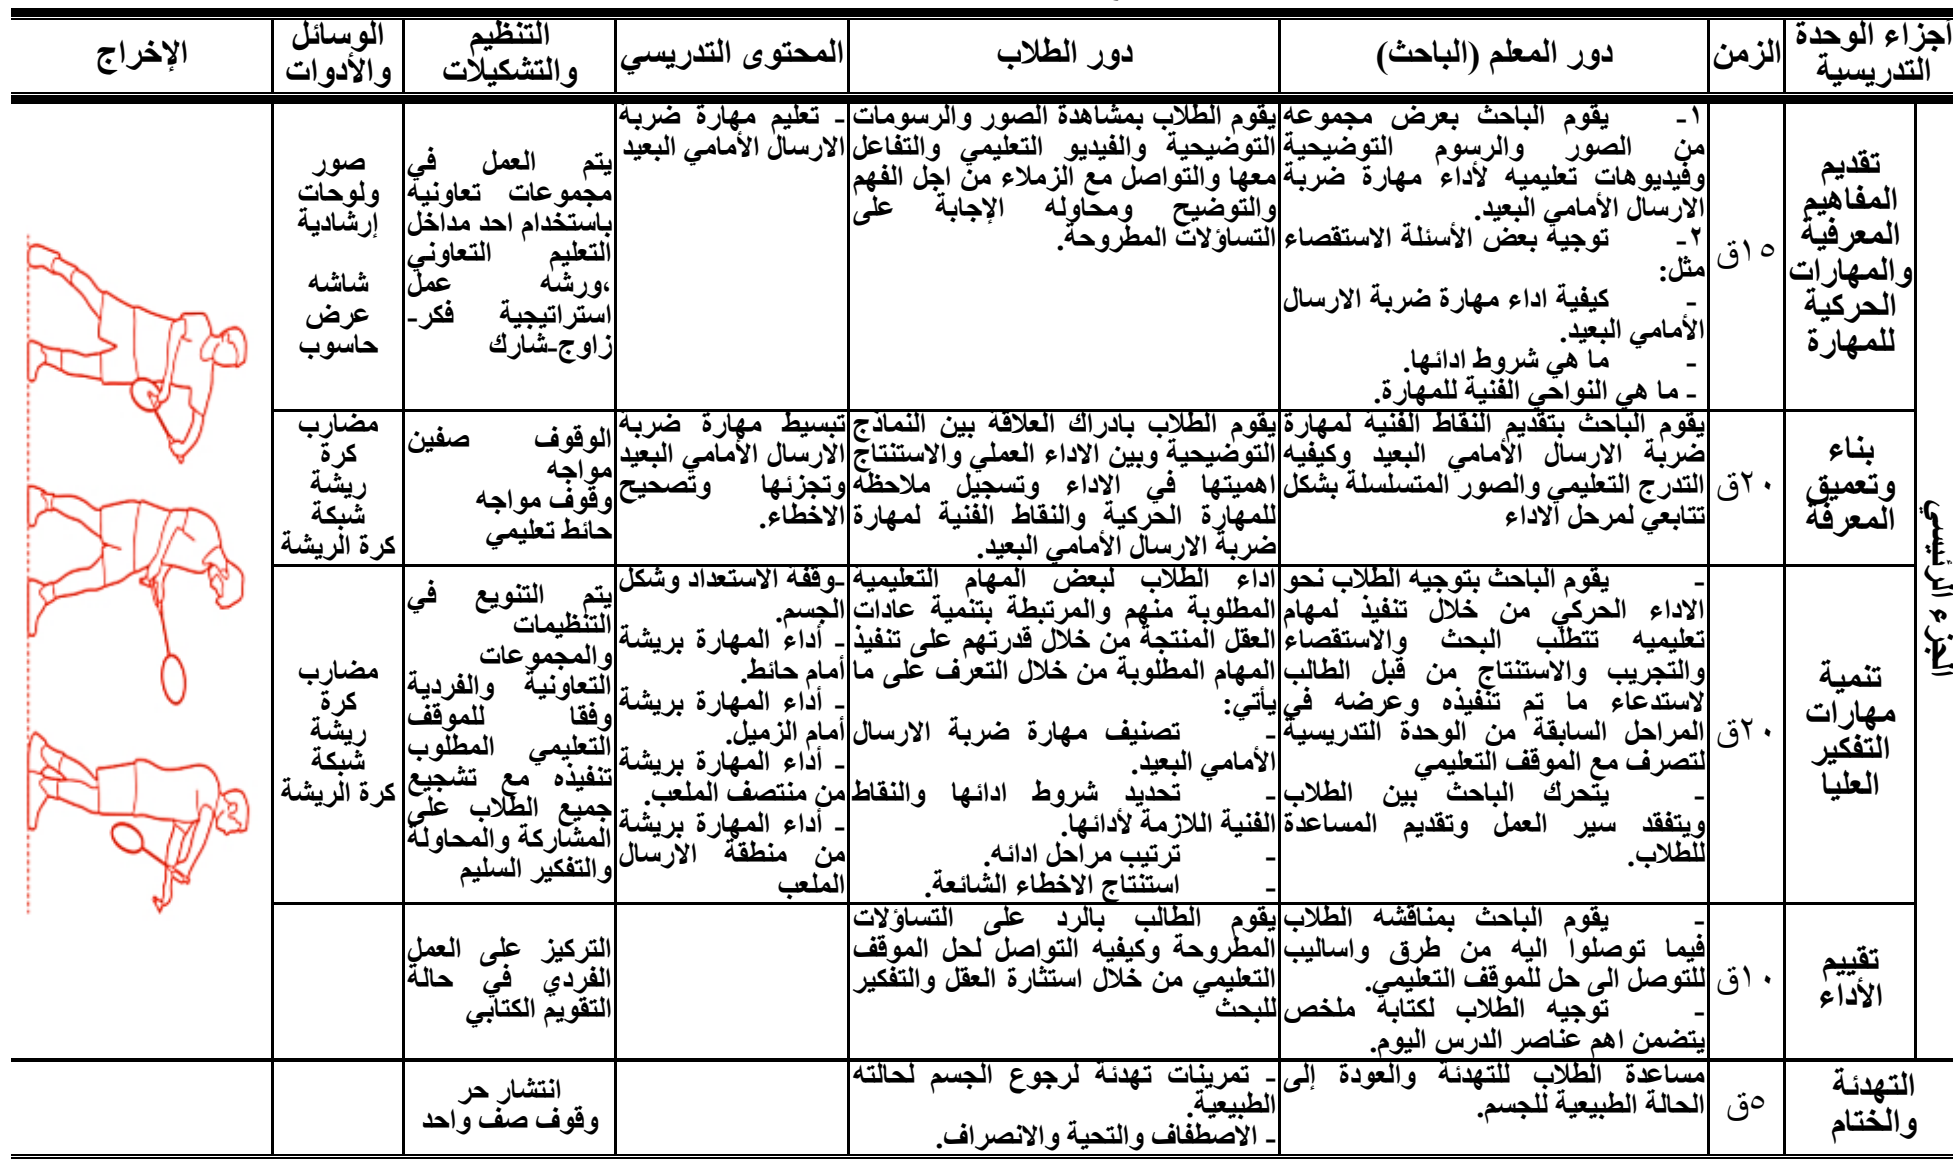 أجزاء الوحدة
التدريسية
الزمن
دور المعلم (الباحث)
دور الطلاب
المحتوى التدريسي
التنظيم
والتشكيلات
الوسائل
والأدوات
الإخراج
الجزء الرئيسي
تقديم
المفاهيم
المعرفية
والمهارات
الحركية
للمهارة
١٥ق
١- يقوم الباحث بعرض مجموعه
من الصور والرسوم التوضيحية
وفيديوهات تعليميه لأداء مهارة ضربة
الارسال الأمامي البعيد.
٢- توجية بعض الأسئلة الاستقصاء
مثل:
- كيفية اداء مهارة ضربة الارسال
الأمامي البعيد.
- ما هي شروط ادائها.
- ما هي النواحي الفنية للمهارة.
يقوم الطلاب بمشاهدة الصور والرسومات
التوضيحية والفيديو التعليمي والتفاعل
معها والتواصل مع الزملاء من اجل الفهم
والتوضيح ومحاوله الإجابة على
التساؤلات المطروحة.
- تعليم مهارة ضربة
الارسال الأمامي البعيد
يتم العمل في
مجموعات تعاونيه
باستخدام احد مداخل
التعليم التعاوني
،ورشه عمل
استراتيجية فكر-
زاوج-شارك
صور
ولوحات
إرشادية
شاشه
عرض
حاسوب
بناء
وتعميق
المعرفة
٢٠ق
يقوم الباحث بتقديم النقاط الفنية لمهارة
ضربة الارسال الأمامي البعيد وكيفيه
التدرج التعليمي والصور المتسلسلة بشكل
تتابعي لمرحل الاداء
يقوم الطلاب بادراك العلاقة بين النماذج
التوضيحية وبين الاداء العملي والاستنتاج
اهميتها في الاداء وتسجيل ملاحظه
للمهارة الحركية والنقاط الفنية لمهارة
ضربة الارسال الأمامي البعيد.
تبسيط مهارة ضربة
الارسال الأمامي البعيد
وتجزئها وتصحيح
الاخطاء.
الوقوف صفين
مواجه
وقوف مواجه
حائط تعليمي
مضارب
كرة
ريشة
شبكة
كرة الريشة
تنمية
مهارات
التفكير
العليا
٢٠ق
- يقوم الباحث بتوجيه الطلاب نحو
الاداء الحركي من خلال تنفيذ لمهام
تعليميه تتطلب البحث والاستقصاء
والتجريب والاستنتاج من قبل الطالب
لاستدعاء ما تم تنفيذه وعرضه في
المراحل السابقة من الوحدة التدريسية
لتصرف مع الموقف التعليمي
- يتحرك الباحث بين الطلاب
ويتفقد سير العمل وتقديم المساعدة
للطلاب.
اداء الطلاب لبعض المهام التعليمية
المطلوبة منهم والمرتبطة بتنمية عادات
العقل المنتجة من خلال قدرتهم على تنفيذ
المهام المطلوبة من خلال التعرف على ما
يأتي:
- تصنيف مهارة ضربة الارسال
الأمامي البعيد.
- تحديد شروط ادائها والنقاط
الفنية اللازمة لأدائها.
- ترتيب مراحل ادائه.
- استنتاج الاخطاء الشائعة.
-وقفة الاستعداد وشكل
الجسم.
- أداء المهارة بريشة
أمام حائط.
- أداء المهارة بريشة
أمام الزميل.
- أداء المهارة بريشة
من منتصف الملعب.
- أداء المهارة بريشة
من منطقة الارسال
الملعب
يتم التنويع في
التنظيمات
والمجموعات
التعاونية والفردية
وفقا للموقف
التعليمي المطلوب
تنفيذه مع تشجيع
جميع الطلاب على
المشاركة والمحاولة
والتفكير السليم
مضارب
كرة
ريشة
شبكة
كرة الريشة
تقييم
الأداء
١٠ق
- يقوم الباحث بمناقشه الطلاب
فيما توصلوا اليه من طرق واساليب
للتوصل الى حل للموقف التعليمي.
- توجية الطلاب لكتابة ملخص
يتضمن اهم عناصر الدرس اليوم.
يقوم الطالب بالرد على التساؤلات
المطروحة وكيفيه التواصل لحل الموقف
التعليمي من خلال استثارة العقل والتفكير
للبحث
التركيز على العمل
الفردي في حالة
التقويم الكتابي
التهدئة
والختام
٥ق
مساعدة الطلاب للتهدئة والعودة إلى
الحالة الطبيعية للجسم.
- تمرينات تهدئة لرجوع الجسم لحالته
الطبيعية.
- الاصطفاف والتحية والانصراف.
انتشار حر
وقوف صف واحد